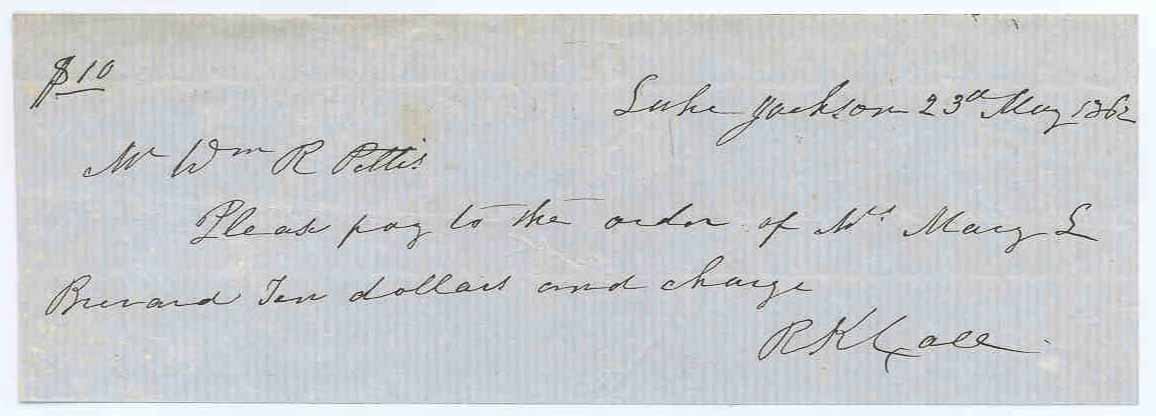 $10
Lake Jackson 23rd May 1862
Mr Wm R Pettis
Please pay to the order of Mrs Mary L
Brevard Ten dollars and charge
R K Call